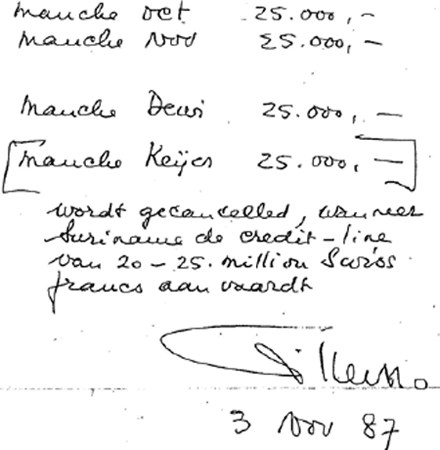 Manche oct 25.000,-
Manche Nov 25.000,-
Manche Dewi 25.000,-
[Manche Keijer 25.000,-]
wordt gecancelled, wanneer
Suriname de credit-line
van 20-25. million Swiss
francs aanvaardt
3 Nov 87